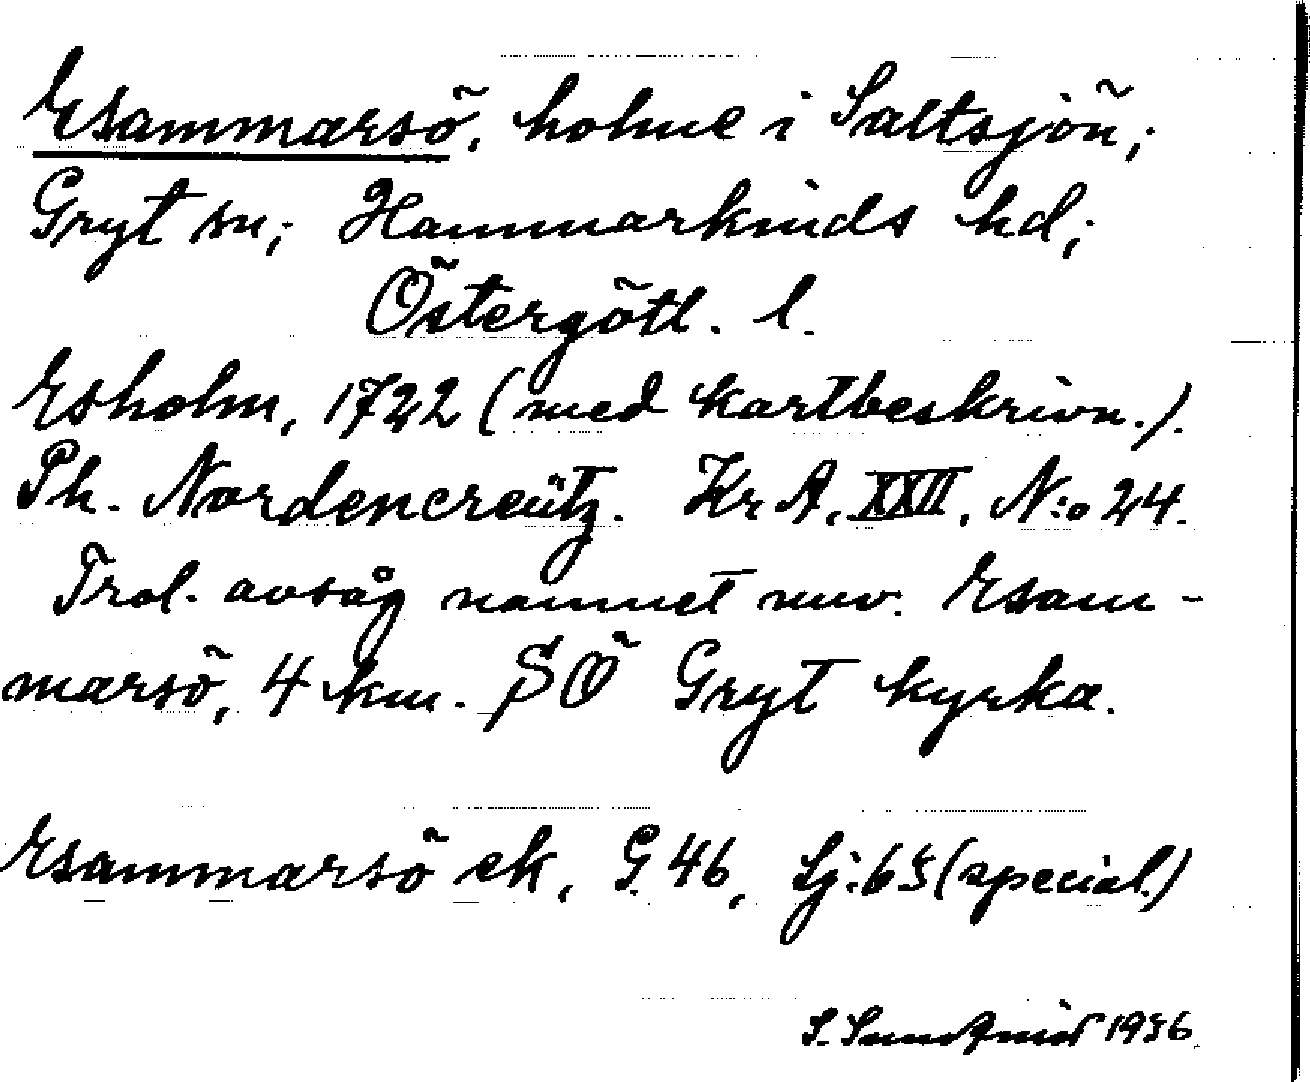 Esammarsö, holme i Saltsjön;
Gryt sn; Hammarkinds hd;
Östergötl. l.
Esholm, 1722 (med kartbeskrivn.).
Ph. Nordencreütz. Kr A. XXII. N:o 24.
Trol. avsåg namnet nuv. Esam-
marsö, 4 km. SÖ Gryt kyrka.
Esammarsö ek, G. 46, Sj:63 (special.)
S. 1936